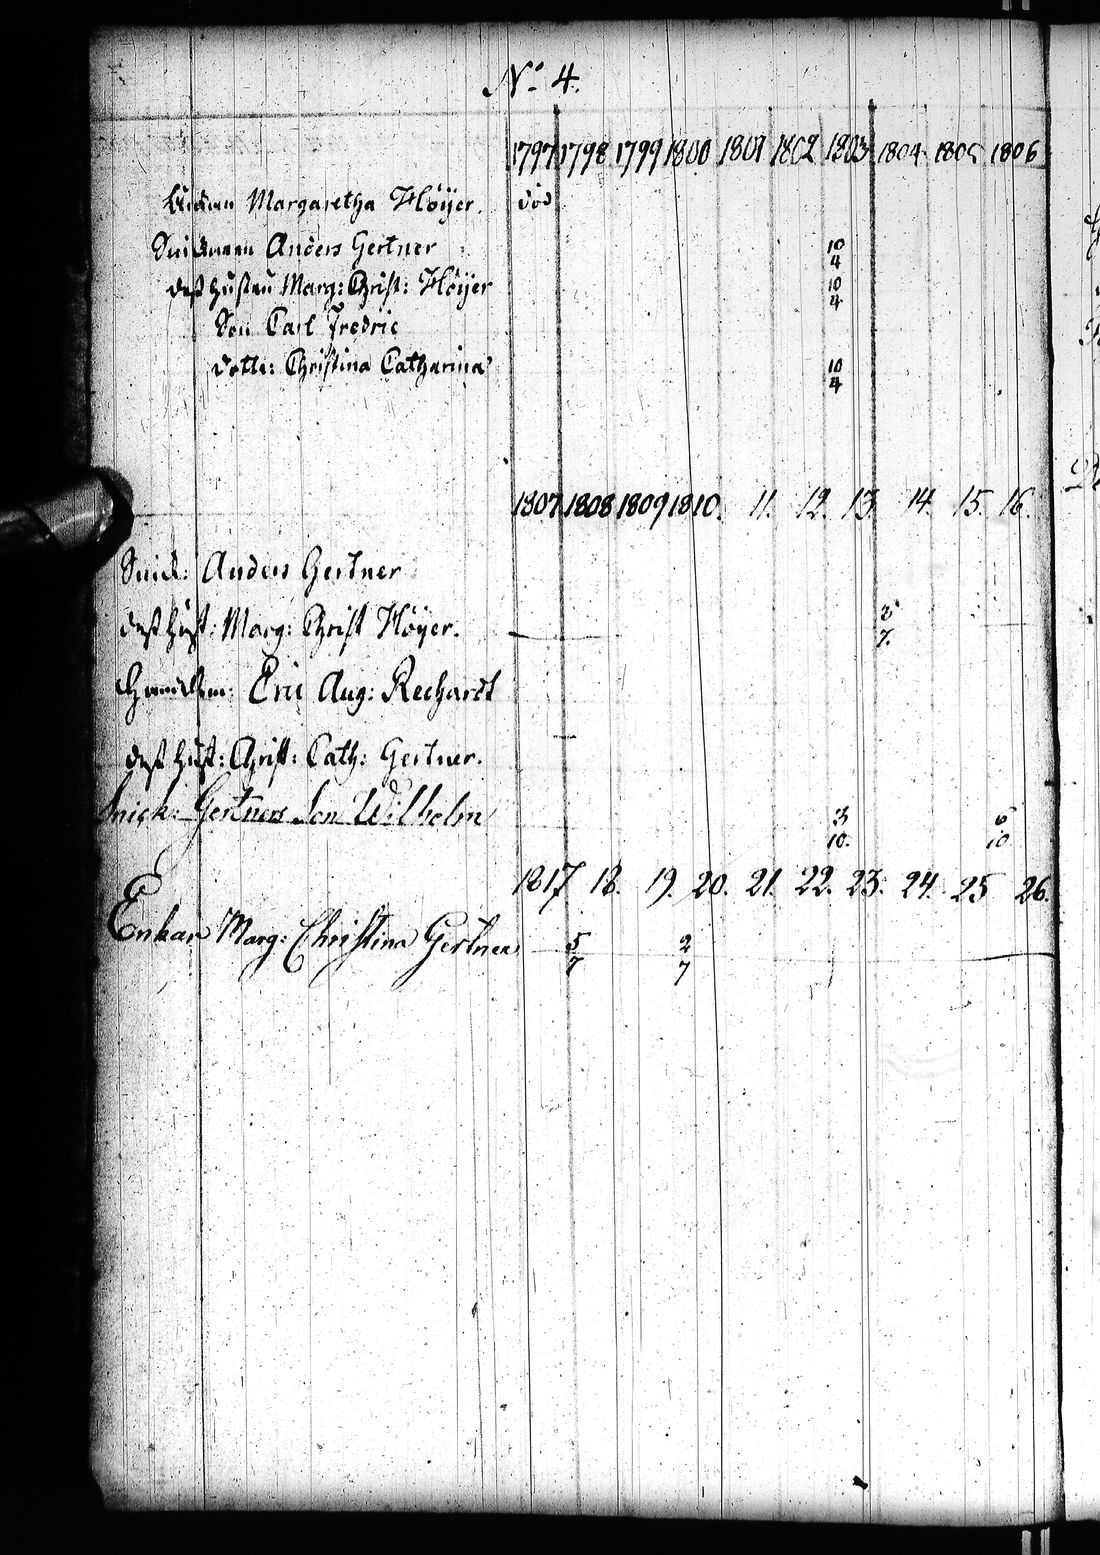 No 4.
1797 1798 1799 1800 1801 1802 1803 1804 1805 1806
Enkan Margaretha Höijer. död
Snickaren Anders Gertner 10/4
dess hustru Marg: Christ: Höijer 10/4
Son Carl Fredric
dotter: Christina Catharina 10/4
1807 1808 1809 1810. 11. 12. 13. 14. 15. 16.
Snick: Anders Gertner
dess hust: Marg: Christ Höijer. 3/7.
Handelsm: Eric Aug: Rechardt
dess hust: Christ: Cath: Gertner.
Snick: Gertners Son Wilhelm 3/10. 6/10
1817 18. 19. 20. 21. 22. 23. 24. 25 26.
Enkan Marg: Christina Gertner 5/7 2/7